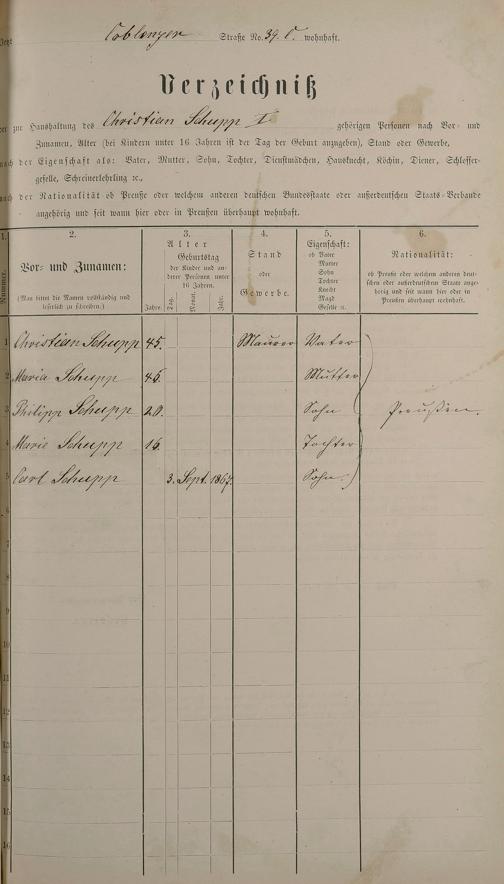 Jetzt Coblenzer Straße No. 39. C. wohnhaft.
Verzeichniß
der zur Haushaltung des Christian Schupp I gehörigen Personen nach Vor- und
Zunamen, Alter (bei Kindern unter 16 Jahren ist der Tag der Geburt anzugeben), Stand oder Gewerbe,
nach der Eigenschaft als: Vater, Mutter, Sohn, Tochter, Dienstmädchen, Hausknecht, Köchin, Diener, Schlosser-
geselle, Schreinerlehrling ꝛc.,
nach der Nationalität ob Preuße oder welchem anderen deutschen Bundesstaate oder außerdeutschen Staats-Verbande
angehörig und seit wann hier oder in Preußen überhaupt wohnhaft.
1. 2. 3. 4. 5. 6.
Nummer.
Vor- und Zunamen:
(Man bittet die Namen vollständig und
leserlich zu schreiben.)
Alter
Jahre.
Geburtstag
der Kinder und an-
derer Personen unter
16 Jahren.
Tag. Monat. Jahr.
Stand
oder
Gewerbe.
Eigenschaft:
ob Vater
Mutter
Sohn
Tochter
Knecht
Magd
Geselle ꝛc.
Nationalität:
ob Preuße oder welchem anderen deut-
schen oder außerdeutschen Staate ange-
hörig und seit wann hier oder in
Preußen überhaupt wohnhaft.
1 Christian Schupp 45. Maurer Vater
2 Maria Schupp 46. Mutter
3 Philipp Schupp 20. Sohn Preußen.
4 Marie Schupp 16. Tochter
5 Carl Schupp 3. Sept. 1867. Sohn.
6
7
8
9
10
11
12
13
14
15
16